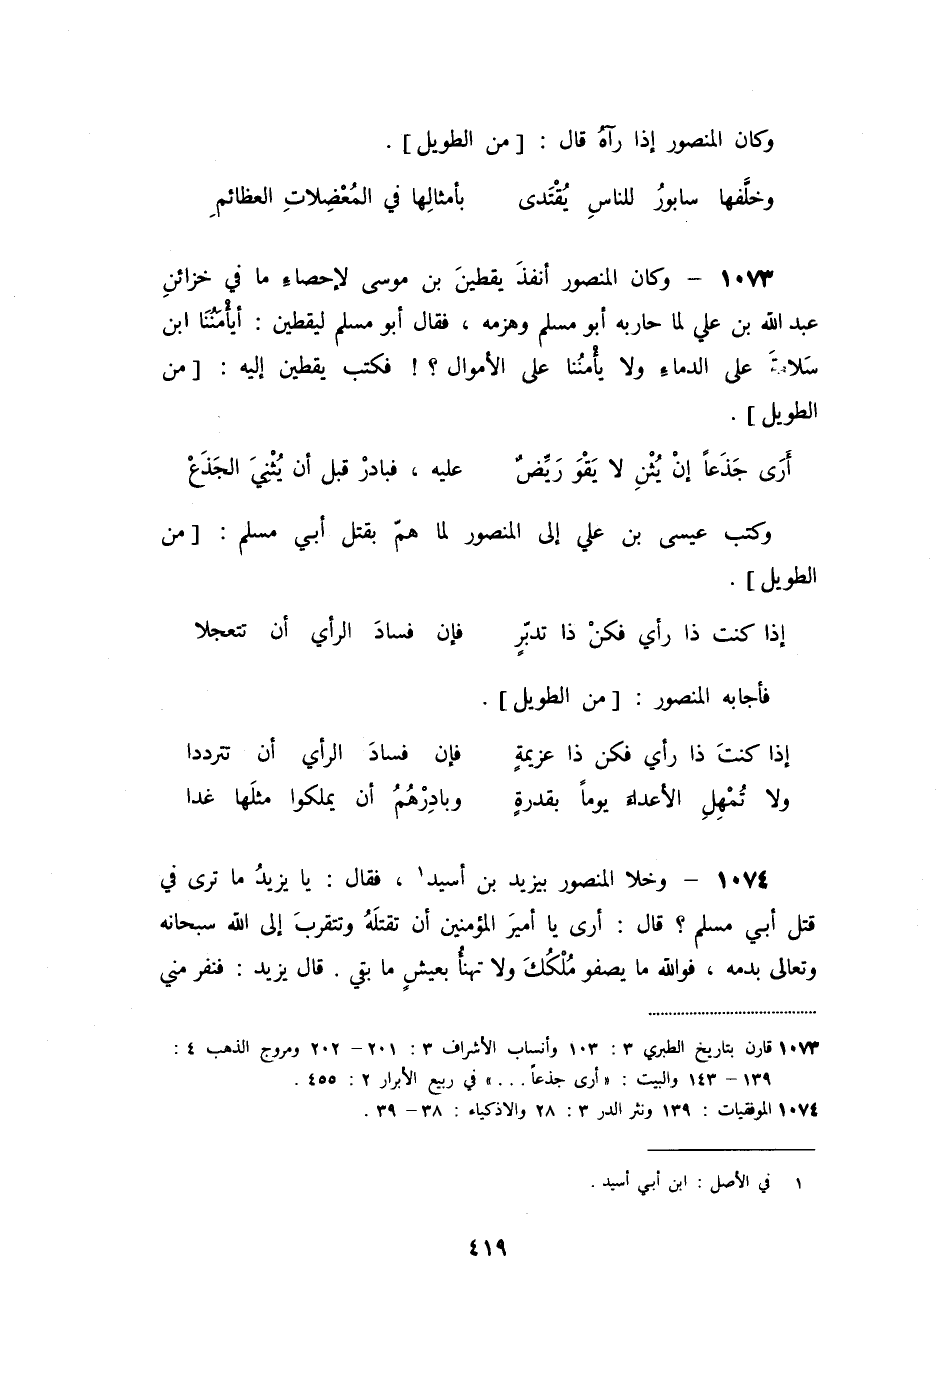 وكان المنصور إذا رآهُ قال : [ من الطويل ] .
وخلَّفها سابورُ للناسِ يُقْتَدى بأمثالِها في المُعْضِلاتِ العظائمِ
١٠٧٣ – وكان المنصور أنفذَ يقطينَ بن موسى لإحصاءِ ما في خزائنِ
عبد الله بن علي لما حاربه أبو مسلم وهزمه ، فقال أبو مسلم ليقطين : أيأْمَنُنَا ابن
سَلامةَ على الدماءِ ولا يأْمنُنا على الأموال ؟ ! فكتب يقطين إليه : [ من
الطويل ] .
أَرَى جَذَعاً إنْ يُثْنِ لا يَقْوَ رَيِّضٌ عليه ، فبادرْ قبل أن يُثْنِيَ الجَذَعْ
وكتب عيسى بن علي إلى المنصور لما همّ بقتل أبي مسلم : [ من
الطويل ] .
إذا كنت ذا رأي فكنْ ذا تدبّرٍ فإن فسادَ الرأي أن تتعجلا
فأجابه المنصور : [ من الطويل ] .
إذا كنتَ ذا رأي فكن ذا عزيمةٍ فإن فسادَ الرأي أن تترددا
ولا تُمْهِلِ الأعداءَ يوماً بقدرةٍ وبادِرْهُمُ أن يملكوا مثلَها غدا
١٠٧٤ – وخلا المنصور بيزيد بن أسيد١ ، فقال : يا يزيدُ ما ترى في
قتل أبي مسلم ؟ قال : أرى يا أميرَ المؤمنين أن تقتلَهُ وتتقربَ إلى الله سبحانه
وتعالى بدمه ، فوالله ما يصفو مُلْكُكَ ولا تهنأُ بعيشٍ ما بقي . قال يزيد : فنفر مني
١٠٧٣ قارن بتاريخ الطبري ٣ : ١٠٣ وأنساب الأشراف ٣ : ٢٠١ – ٢٠٢ ومروج الذهب ٤ :
١٣٩ – ١٤٣ والبيت : « أرى جذعاً . . . » في ربيع الأبرار ٢ : ٤٥٥ .
١٠٧٤ الموفقيات : ١٣٩ ونثر الدر ٣ : ٢٨ والاذكياء : ٣٨ – ٣٩ .
١ في الأصل : ابن أبي أسيد .
٤١٩